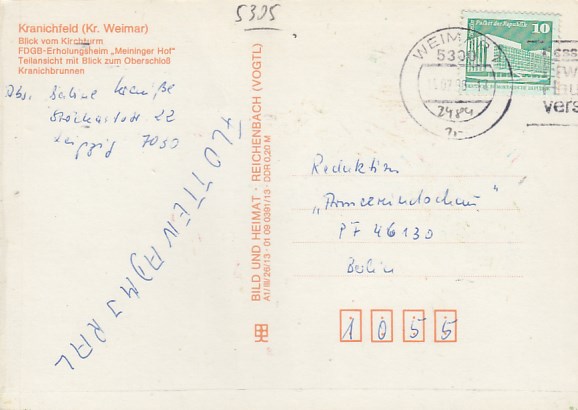 5305
Kranichfeld (Kr. Weimar)
Blick vom Kirchturm
FDGB-Erholungsheim „Meininger Hof"
Teilansicht mit Blick zum Oberschloß
Kranichbrunnen
Abs. Sabine
22
Leipzig 7050
FLOTTENADMIRAL
BILD UND HEIMAT · REICHENBACH (VOGTL)
A1/III/26/13 · 01 09 0391/13 · DDR 0,20 M
Palast der Republik 10
WEIMAR 2
5300
Redaktion
„Armeerundschau"
PF 46130
Berlin
1 0 5 5